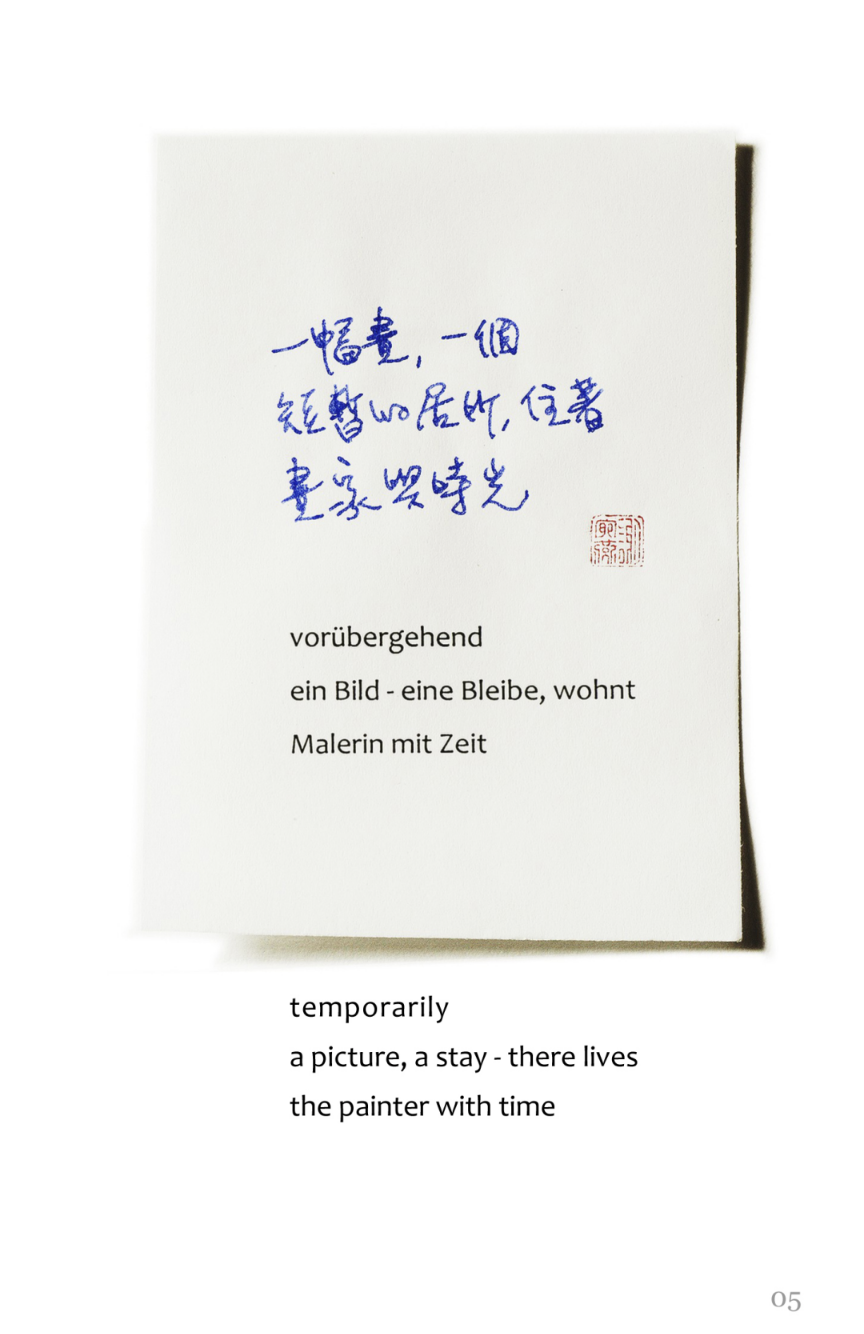 一幅畫,一個
短暫的居所,住著
畫家與時光
vorübergehend
ein Bild - eine Bleibe, wohnt
Malerin mit Zeit
temporarily
a picture, a stay - there lives
the painter with time
05